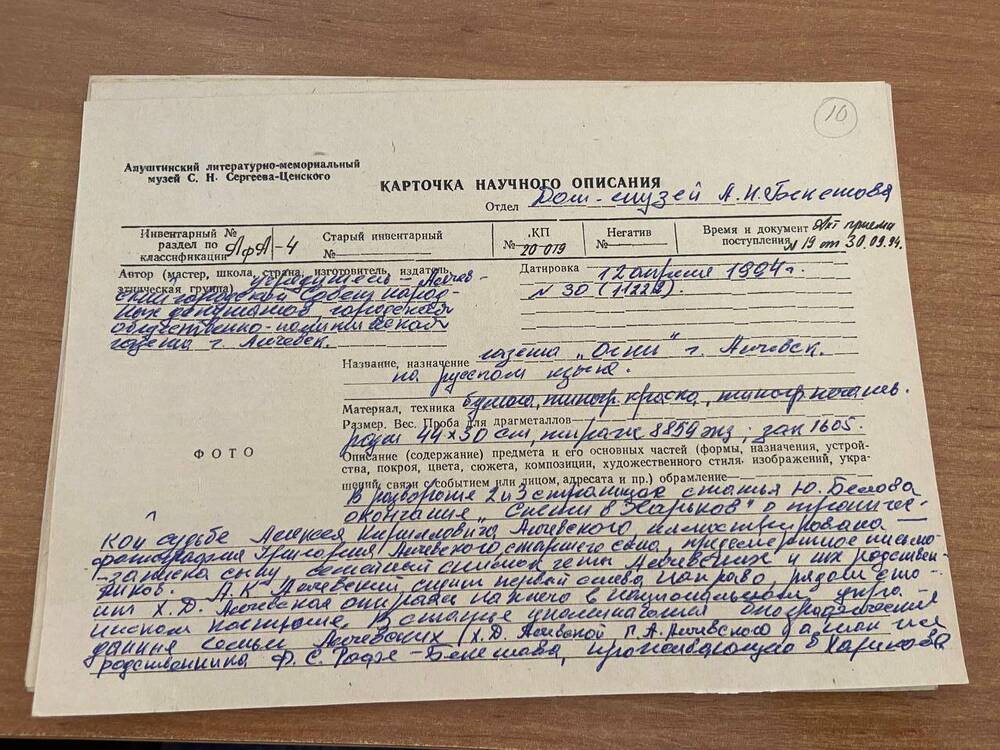 10
Алуштинский литературно-мемориальный
музей С. Н. Сергеева-Ценского
КАРТОЧКА НАУЧНОГО ОПИСАНИЯ
Отдел Дом-музей А.Н. Бекетова
Инвентарный №
раздел по
классификации АфЛ-4
Старый инвентарный
№
КП
№ 20-019
Негатив
№
Время и документ Акт приема
поступления N 19 от 30.09.94.
Автор (мастер, школа, страна, изготовитель, издатель,
этническая группа) учредитель - Алчев-
ский городской Совет народ-
ных депутатов, городская
общественно-политическая
газета г. Алчевск.
Датировка 12 апреля 1994 г.
N 30 (11228).
Название, назначение газета „Огни" г. Алчевск.
на русском языке.
Материал, техника бумага, типогр. краска, типогр. печать.
Размер. Вес. Проба для драгметаллов
разм 44 × 30 см, тираж 8859 экз; зак 1605.
ФОТО
Описание (содержание) предмета и его основных частей (формы, назначения, устрой-
ства, покроя, цвета, сюжета, композиции, художественного стиля, изображений, укра-
шений, связи с событием или лицом, адресата и пр.) обрамление
В развороте 2 и 3 страницах статья Ю. Белова
окончание „Спеши в Харьков" о трагичес-
кой судьбе Алексея Кирилловича Алчевского иллюстрирована
фотография Григория Алчевского старшего сына, предсмертное письмо-
-записка сыну, семейный снимок четы Алчевских и их родствен-
ников. А.К Алчевский сидит первый слева направо, рядом сто-
ит Х.Д. Алчевская опираясь на него в национальном укра-
инском костюме. В статье упоминаются биографические
данные семьи Алчевских (Х.Д. Алчевской Г.А. Алчевского) а
родственника Ф.С. Рофе-Бекетова, проживающего в Харькове